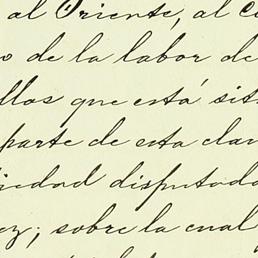 al Oriente, al c
o de la labor de
llas que está sit
parte de esta clau
iedad disputada
ez; sobre la cual